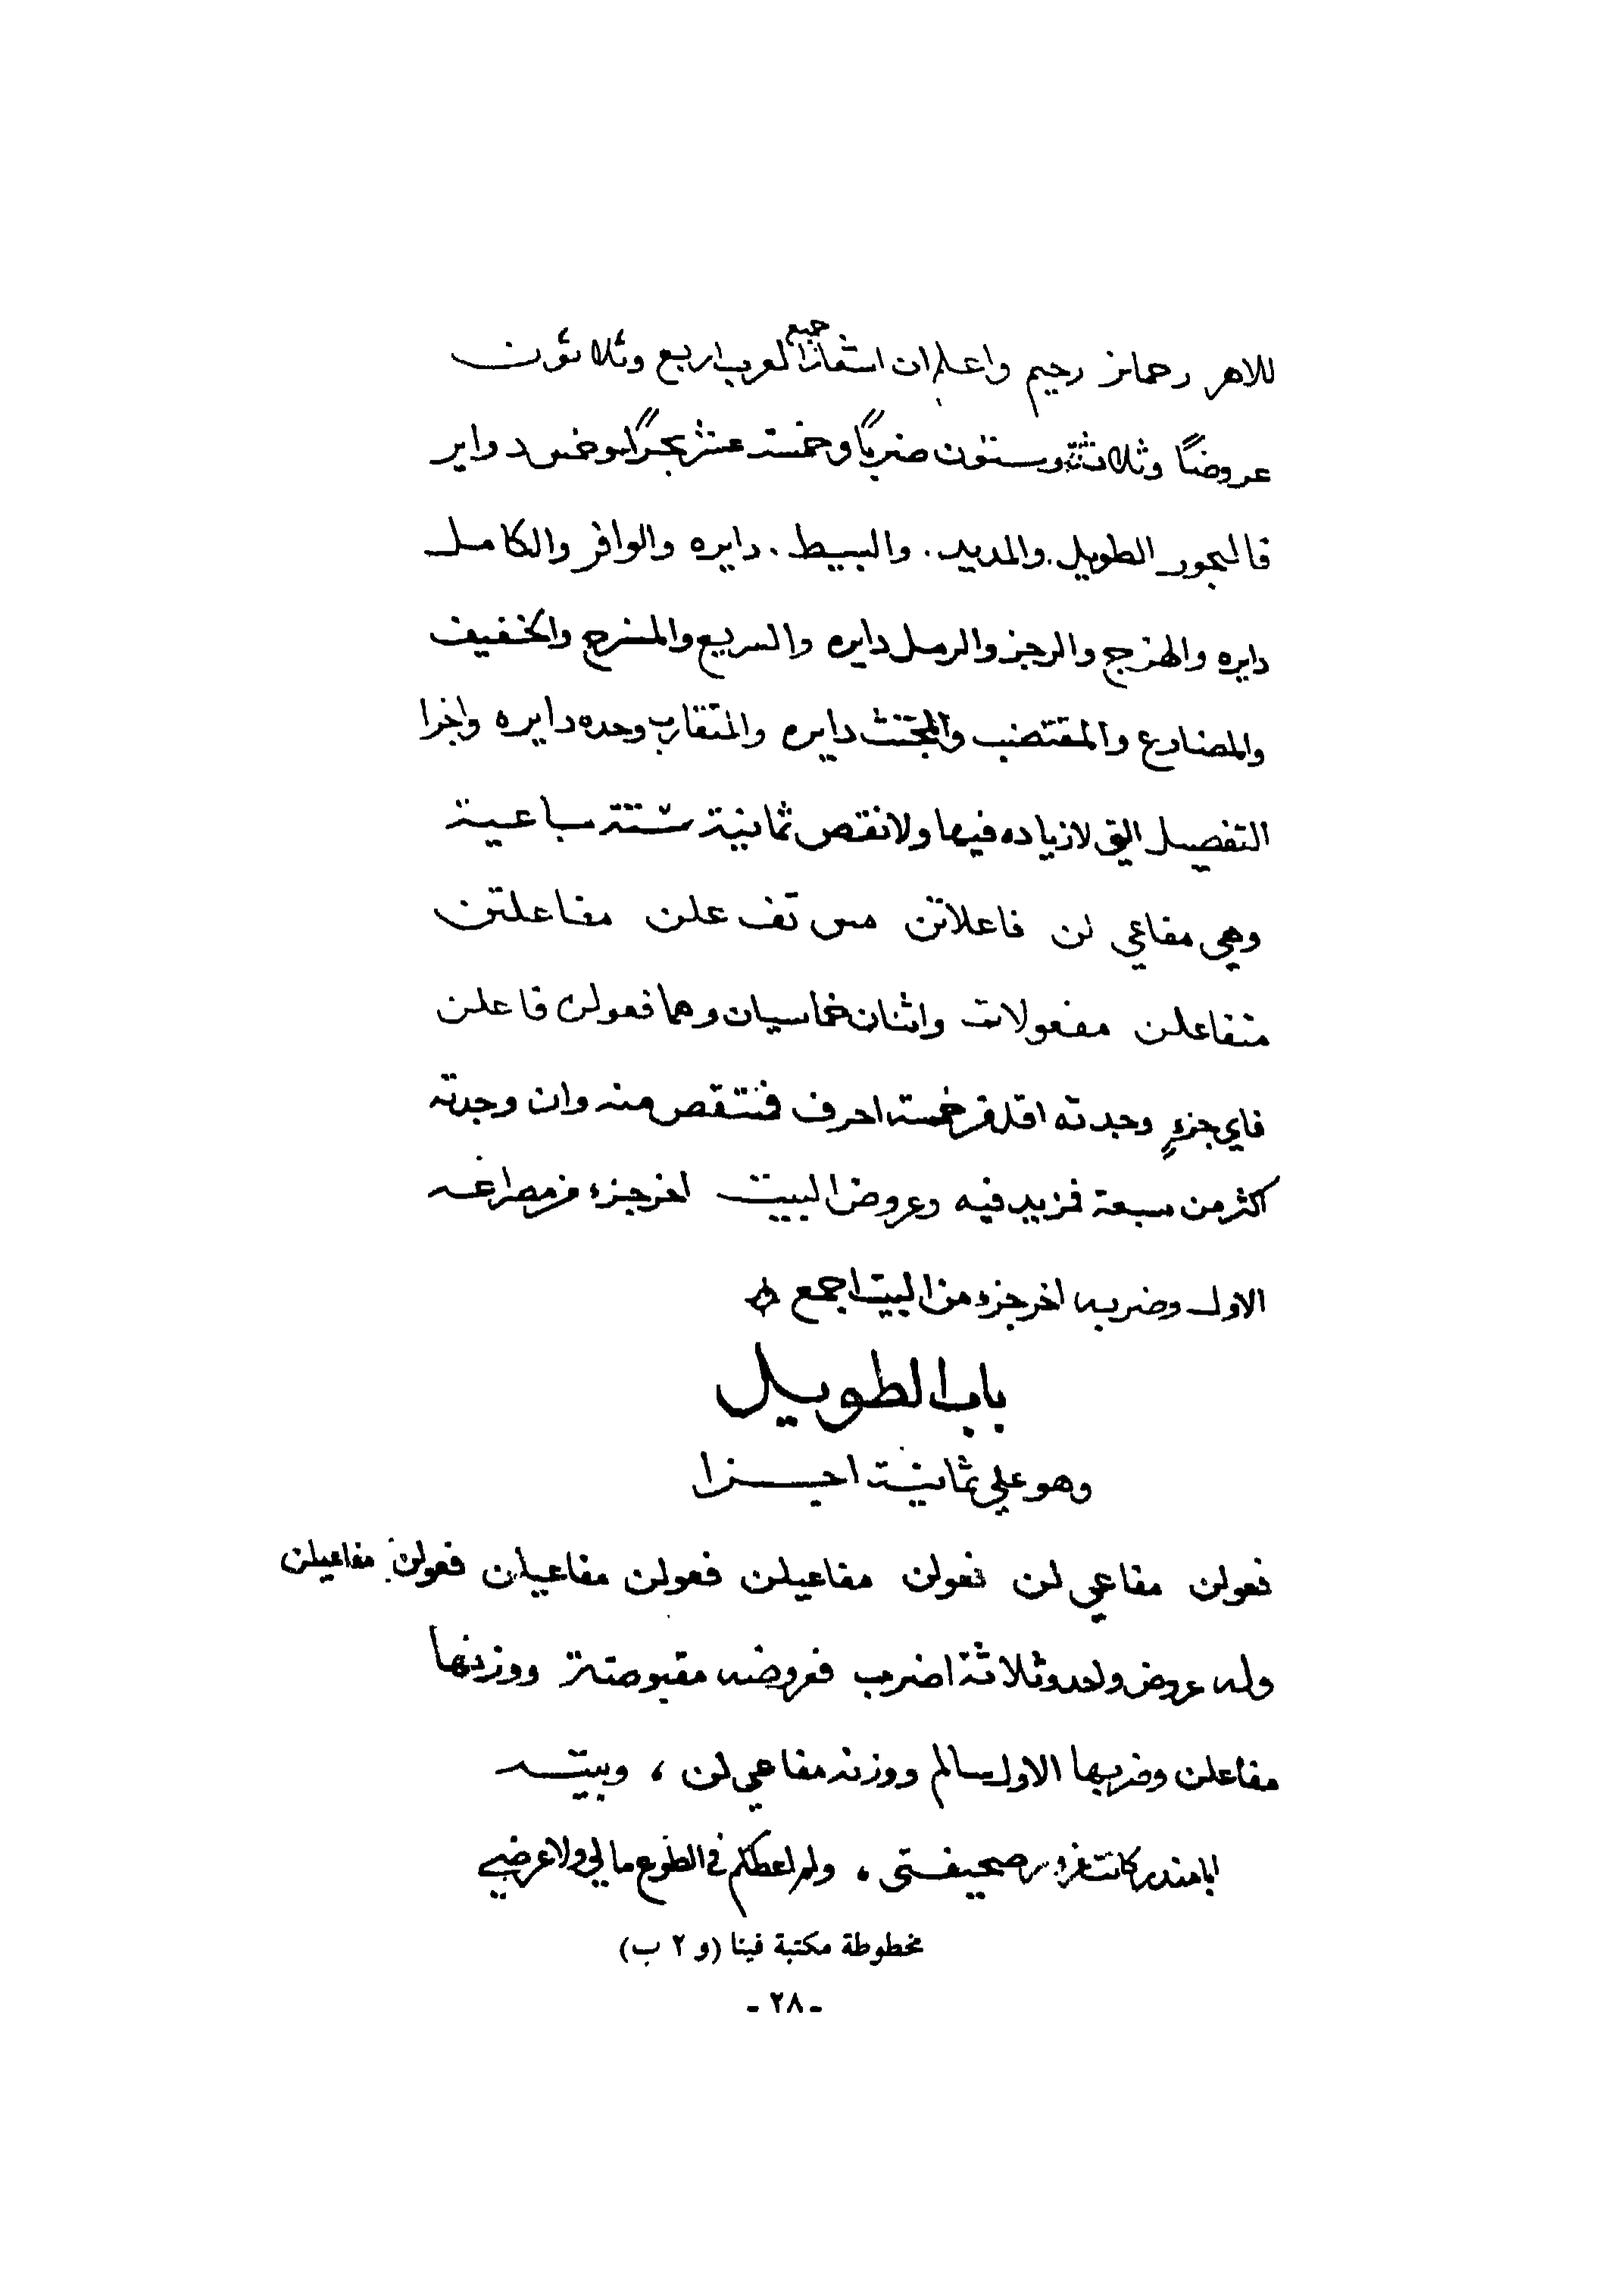 للاهر رحمانر رحيم واعلم ان اشعار جميع العرب اربع وثلاثون
عروضاً وثلاثة وستون ضرباً وخمسة عشر بحراً وخمس دواير
فالبحور الطويل. والمديد. والبسيط. دايره والوافر والكامل
دايره والهزج والرجز والرمل دايره والسريع والمنسرح والخفيف
والمضارع والمقتضب والمجتث دايره والمتقارب وحده دايره واجزا
التفصيل التي لا زياده فيها ولا نقص ثمانية ستة سباعية
وهي مفاعي لن فاعلاتن مس تف علن مفاعلتن
متفاعلن مفعولات واثنان خماسيان وهما فعولن فاعلن
فاي جزءٍ وجدته اقل من خمسة احرف فنتقص منه وان وجدته
اكثر من سبعة فزيد فيه وعروض البيت اخر جزء من مصراعه
الاول وضربه اخر جزء من البيت اجمع
باب الطويل
وهو علي ثمانية اجزا
فعولن مفاعي لن فعولن مفاعيلن فعولن مفاعيلن فعولن مفاعيلن
وله عروض واحد وثلاثة اضرب فعروضه مقبوضة ووزنها
مفاعلن وضربها الاول سالم ووزنه مفاعي لن ، وبيته
ابا منذر كانت غرورا صحيفتي ، ولم اعطكم في الطوع مالي ولا عرضي
مخطوطة مكتبة فينا (و ٢ ب)
- ٢٨ -